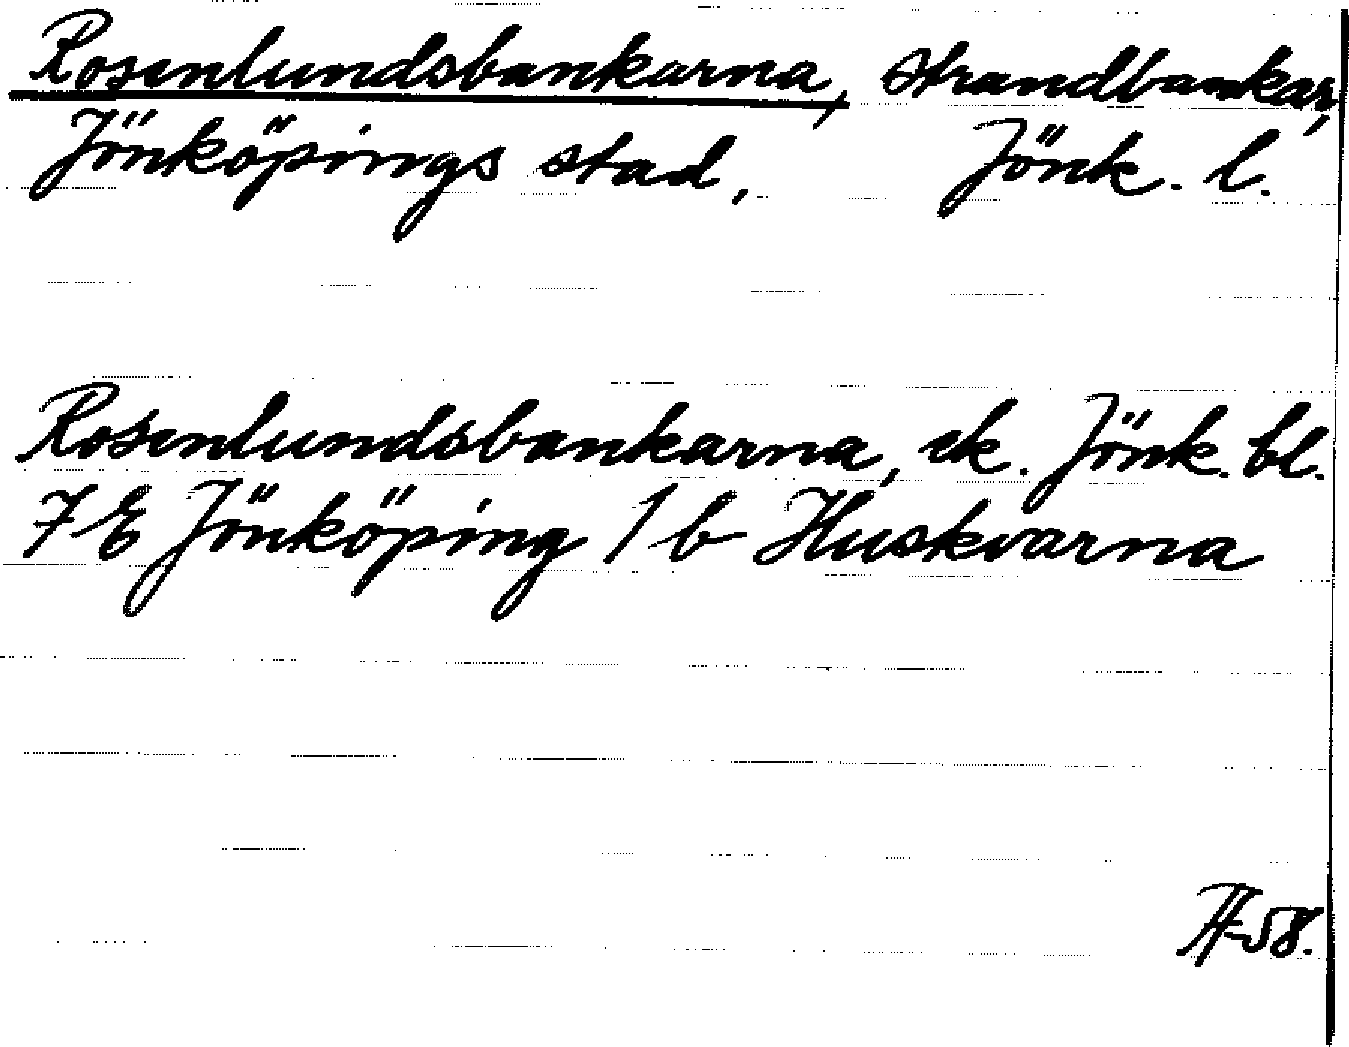 Rosenlundsbankarna, strandbankar,
Jönköpings stad, Jönk. l.
Rosenlundsbankarna, ek. Jönk. bl.
7E Jönköping 1b Huskvarna
58.